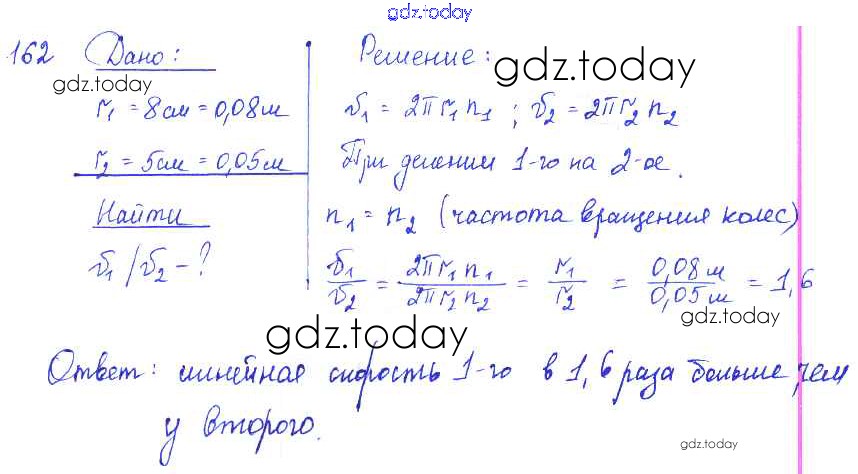 gdz.today
162 Дано:
gdz.today
r₁ = 8см = 0,08м
r₂ = 5см = 0,05м
Найти
v₁/v₂ - ?
Решение:
gdz.today
v₁ = 2πr₁n₁ ; v₂ = 2πr₂n₂
При делении 1-го на 2-ое.
n₁ = n₂ (частота вращения колес)
v₁/v₂ = 2πr₁n₁/2πr₂n₂ = r₁/r₂ = 0,08м/0,05м = 1,6
gdz.today
gdz.today
Ответ: линейная скорость 1-го в 1,6 раза больше, чем
у второго.
gdz.today